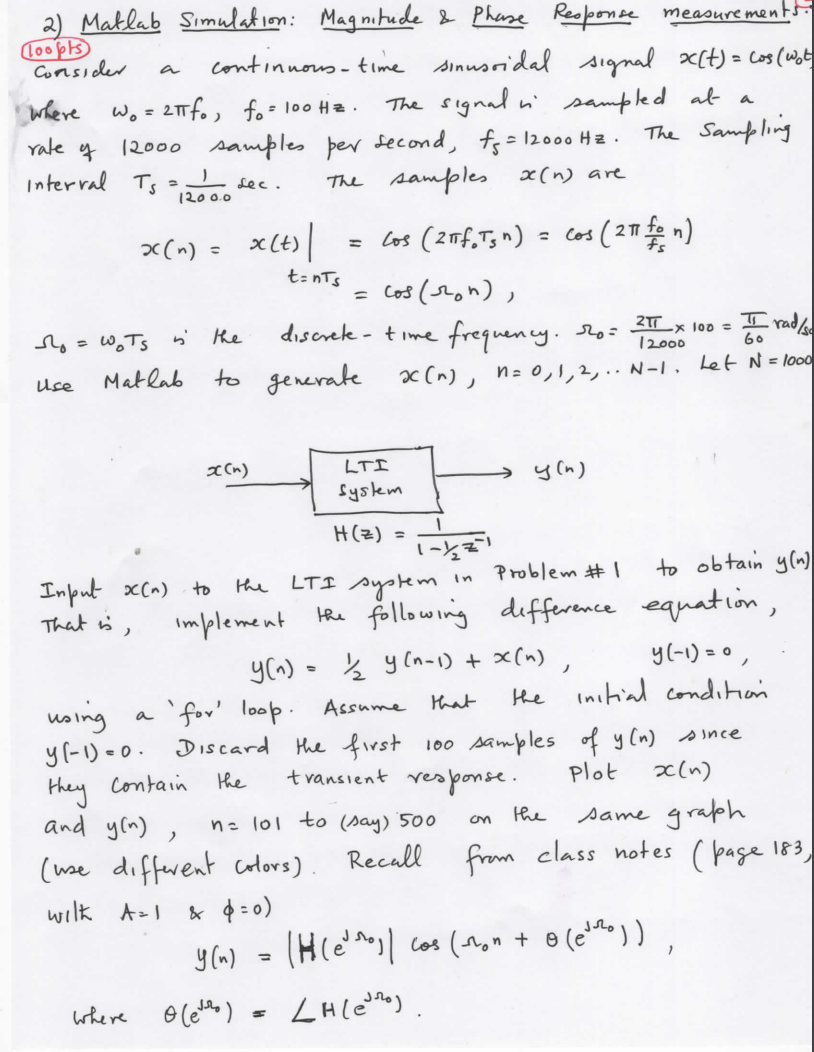 2) Matlab Simulation: Magnitude & Phase Response measurements.
(100pts)
Consider a continuous-time sinusoidal signal x(t) = cos(ω₀t
where ω₀ = 2πf₀, f₀ = 100 Hz. The signal is sampled at a
rate of 12000 samples per second, fs = 12000 Hz. The Sampling
interval Ts = 1/12000 sec. The samples x(n) are
x(n) = x(t)| t=nTs = cos (2πf₀Tsn) = cos (2π f₀/fs n)
= cos(Ω₀n),
Ω₀ = ω₀Ts is the discrete-time frequency. Ω₀ = 2π/12000 × 100 = π/60 rad/s
Use Matlab to generate x(n), n = 0,1,2,.. N-1. Let N = 1000
x(n) LTI system y(n)
H(z) = 1/(1-½z⁻¹)
Input x(n) to the LTI system in Problem #1 to obtain y(n)
That is, implement the following difference equation,
y(n) = ½ y(n-1) + x(n), y(-1) = 0,
using a 'for' loop. Assume that the initial condition
y(-1) = 0. Discard the first 100 samples of y(n) since
they contain the transient response. Plot x(n)
and y(n), n = 101 to (say) 500 on the same graph
(use different colors). Recall from class notes (page 183,
with A=1 & φ=0)
y(n) = |H(e^{jΩ₀})| cos (Ω₀n + θ(e^{jΩ₀})),
where θ(e^{jΩ₀}) = ∠H(e^{jΩ₀}).